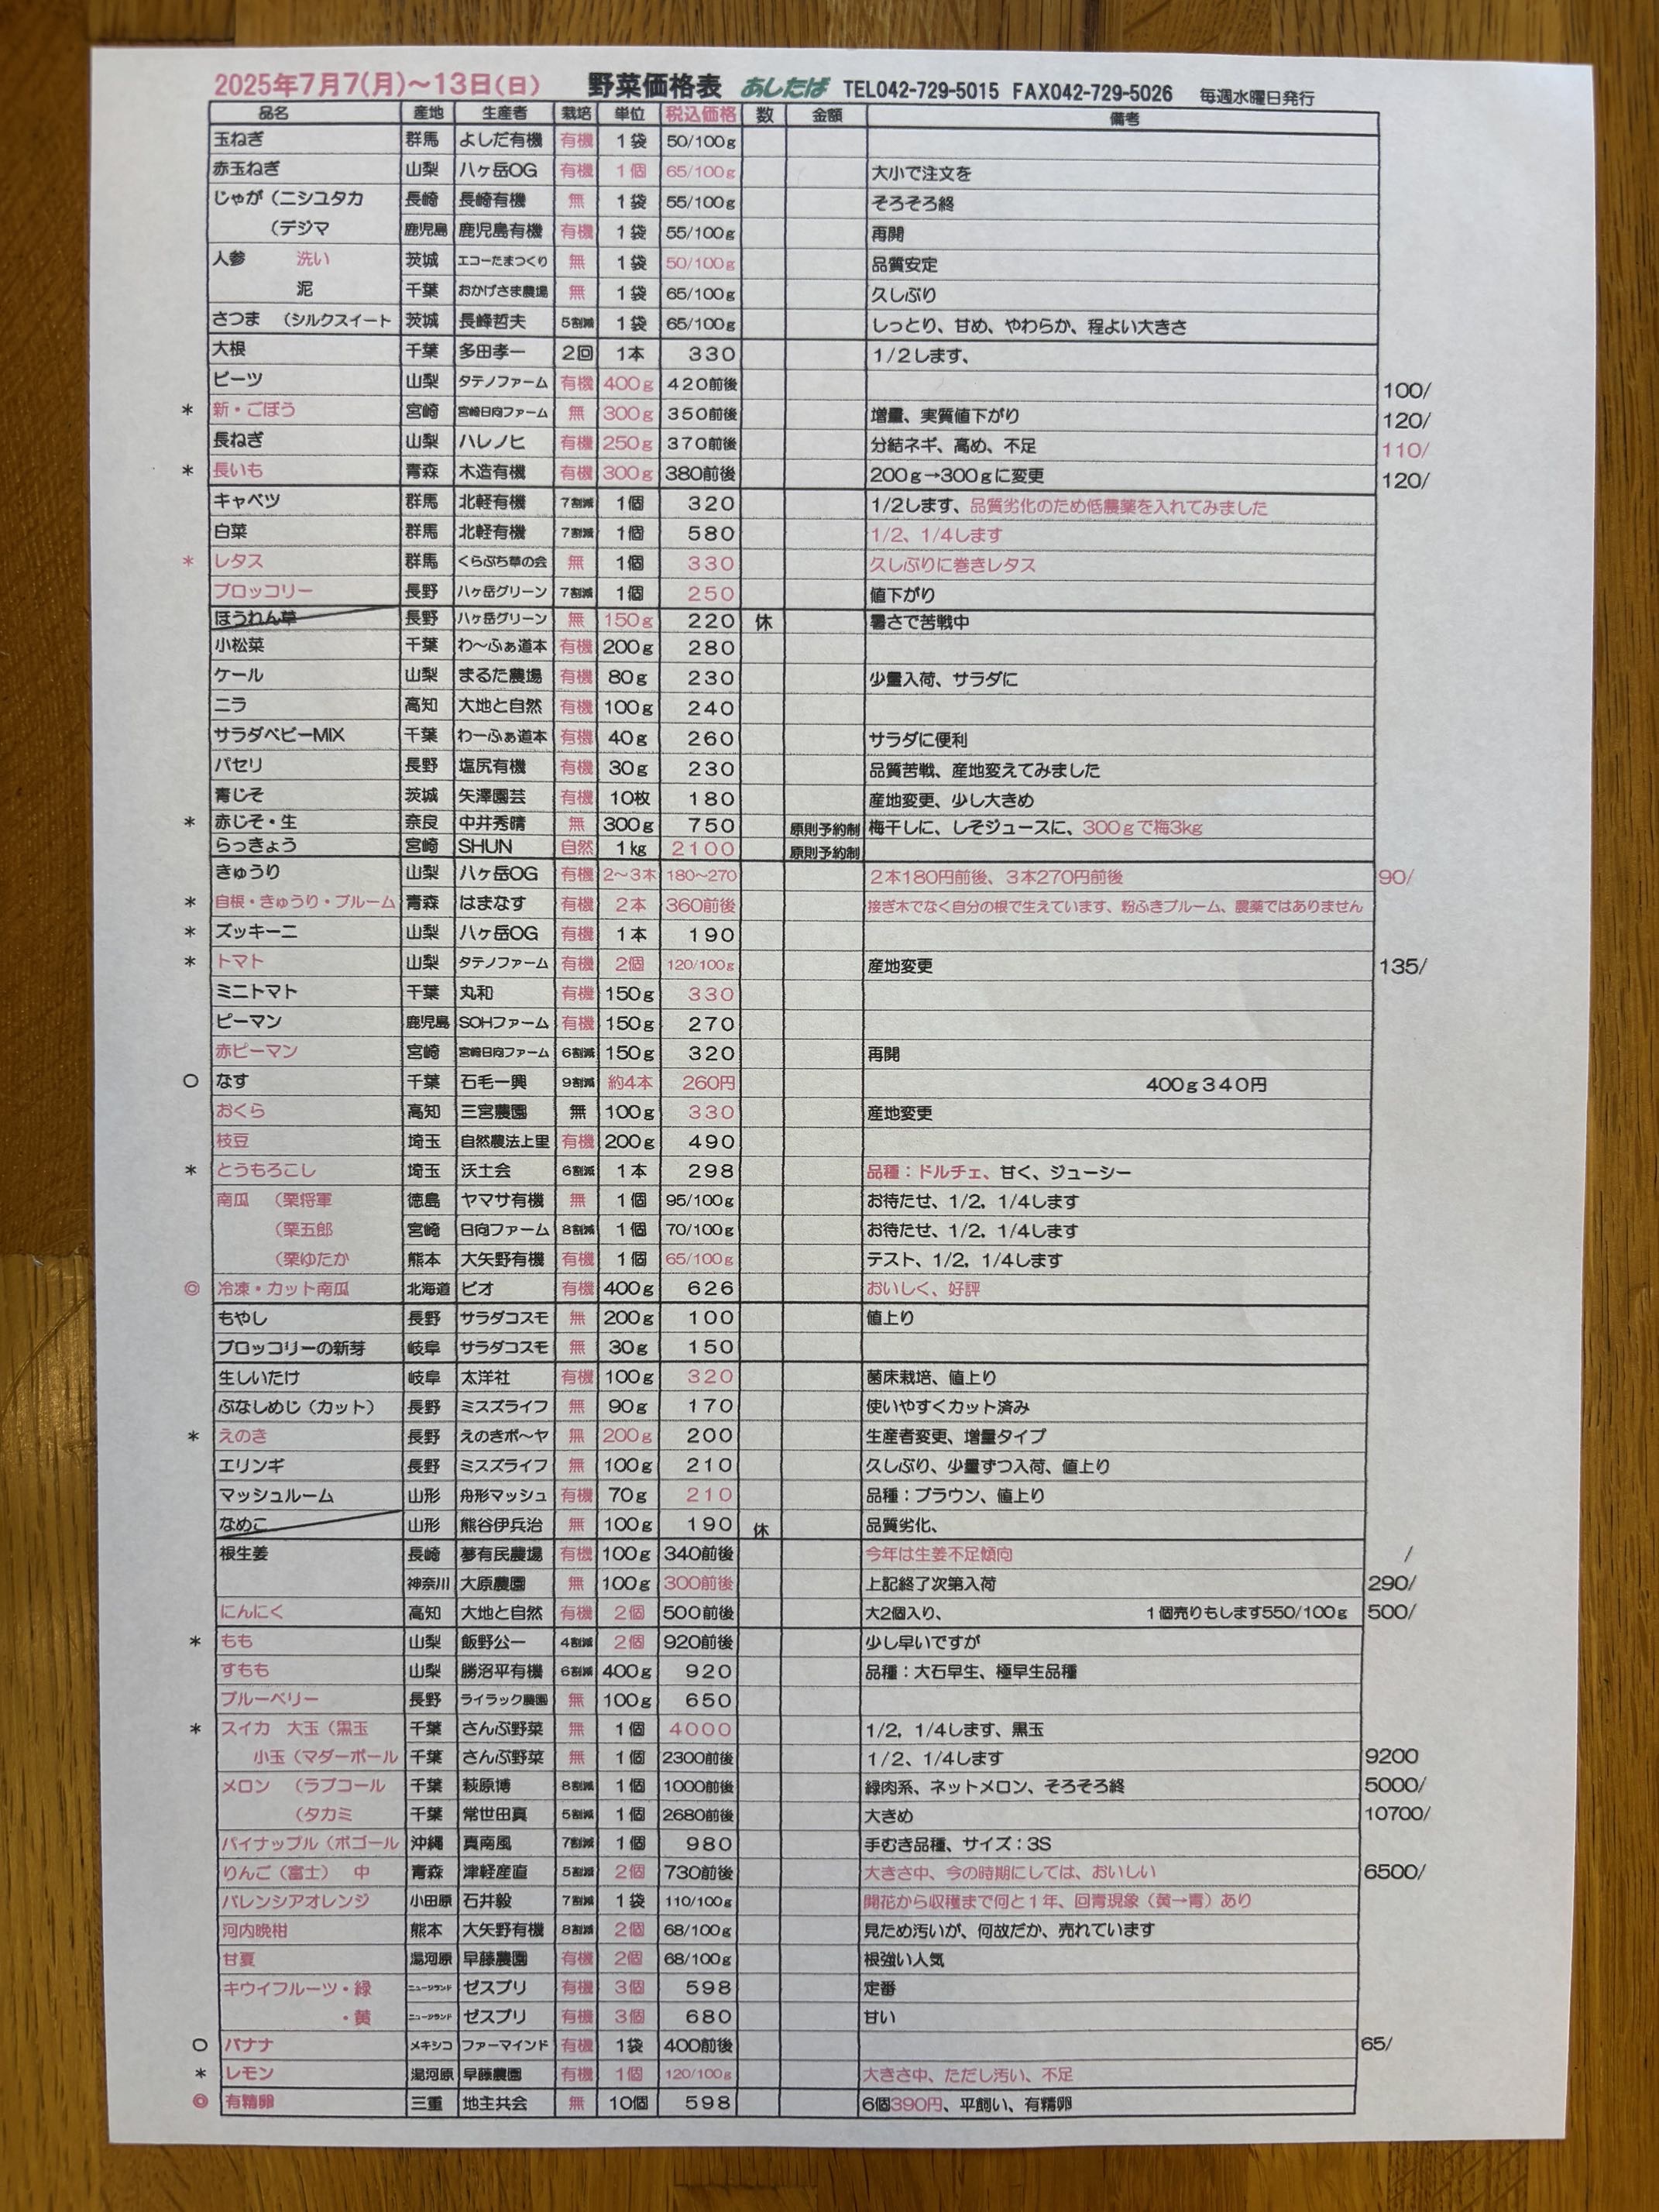 2025年7月7(月)～13日(日) 野菜価格表 あしたば TEL042-729-5015 FAX042-729-5026 毎週水曜日発行
品名 産地 生産者 栽培 単位 税込価格 数 金額 備考
玉ねぎ 群馬 よしだ有機 有機 1袋 50/100g
赤玉ねぎ 山梨 八ヶ岳OG 有機 1個 65/100g 大小で注文を
じゃが（ニシユタカ 長崎 長崎有機 無 1袋 55/100g そろそろ終
（デジマ 鹿児島 鹿児島有機 有機 1袋 55/100g 再開
人参 洗い 茨城 エコーたまつくり 無 1袋 50/100g 品質安定
泥 千葉 おかげさま農場 無 1袋 65/100g 久しぶり
さつま （シルクスイート 茨城 長峰哲夫 5割減 1袋 65/100g しっとり、甘め、やわらか、程よい大きさ
大根 千葉 多田孝一 2回 1本 330 1/2します、
ビーツ 山梨 タテノファーム 有機 400g 420前後 100/
* 新・ごぼう 宮崎 宮崎日向ファーム 無 300g 350前後 増量、実質値下がり 120/
長ねぎ 山梨 ハレノヒ 有機 250g 370前後 分結ネギ、高め、不足 110/
* 長いも 青森 木造有機 有機 300g 380前後 200g→300gに変更 120/
キャベツ 群馬 北軽有機 7割減 1個 320 1/2します、品質劣化のため低農薬を入れてみました
白菜 群馬 北軽有機 7割減 1個 580 1/2、1/4します
* レタス 群馬 くらぶち草の会 無 1個 330 久しぶりに巻きレタス
ブロッコリー 長野 八ヶ岳グリーン 7割減 1個 250 値下がり
ほうれん草 長野 八ヶ岳グリーン 無 150g 220 休 暑さで苦戦中
小松菜 千葉 わ～ふぁ道本 有機 200g 280
ケール 山梨 まるた農場 有機 80g 230 少量入荷、サラダに
ニラ 高知 大地と自然 有機 100g 240
サラダベビーMIX 千葉 わーふぁ道本 有機 40g 260 サラダに便利
パセリ 長野 塩尻有機 有機 30g 230 品質苦戦、産地変えてみました
青じそ 茨城 矢澤園芸 有機 10枚 180 産地変更、少し大きめ
* 赤じそ・生 奈良 中井秀晴 無 300g 750 原則予約制 梅干しに、しそジュースに、300gで梅3kg
らっきょう 宮崎 SHUN 自然 1kg 2100 原則予約制
きゅうり 山梨 八ヶ岳OG 有機 2～3本 180～270 2本180円前後、3本270円前後 90/
* 自根・きゅうり・ブルーム 青森 はまなす 有機 2本 360前後 接ぎ木でなく自分の根で生えています、粉ふきブルーム、農薬ではありません
* ズッキーニ 山梨 八ヶ岳OG 有機 1本 190
* トマト 山梨 タテノファーム 有機 2個 120/100g 産地変更 135/
ミニトマト 千葉 丸和 有機 150g 330
ピーマン 鹿児島 SOHファーム 有機 150g 270
赤ピーマン 宮崎 宮崎日向ファーム 6割減 150g 320 再開
○ なす 千葉 石毛一興 9割減 約4本 260円 400g340円
おくら 高知 三宮農園 無 100g 330 産地変更
枝豆 埼玉 自然農法上里 有機 200g 490
* とうもろこし 埼玉 沃土会 6割減 1本 298 品種：ドルチェ、甘く、ジューシー
南瓜 （栗将軍 徳島 ヤマサ有機 無 1個 95/100g お待たせ、1/2，1/4します
（栗五郎 宮崎 日向ファーム 8割減 1個 70/100g お待たせ、1/2，1/4します
（栗ゆたか 熊本 大矢野有機 有機 1個 65/100g テスト、1/2，1/4します
◎ 冷凍・カット南瓜 北海道 ビオ 有機 400g 626 おいしく、好評
もやし 長野 サラダコスモ 無 200g 100 値上り
ブロッコリーの新芽 岐阜 サラダコスモ 無 30g 150
生しいたけ 岐阜 太洋社 有機 100g 320 菌床栽培、値上り
ぶなしめじ（カット） 長野 ミスズライフ 無 90g 170 使いやすくカット済み
* えのき 長野 えのきボ～ヤ 無 200g 200 生産者変更、増量タイプ
エリンギ 長野 ミスズライフ 無 100g 210 久しぶり、少量ずつ入荷、値上り
マッシュルーム 山形 舟形マッシュ 有機 70g 210 品種：ブラウン、値上り
なめこ 山形 熊谷伊兵治 無 100g 190 休 品質劣化、
根生姜 長崎 夢有民農場 有機 100g 340前後 今年は生姜不足傾向 /
神奈川 大原農園 無 100g 300前後 上記終了次第入荷 290/
にんにく 高知 大地と自然 有機 2個 500前後 大2個入り、 1個売りもします550/100g 500/
* もも 山梨 飯野公一 4割減 2個 920前後 少し早いですが
すもも 山梨 勝沼平有機 6割減 400g 920 品種：大石早生、極早生品種
ブルーベリー 長野 ライラック農園 無 100g 650
* スイカ 大玉（黒玉 千葉 さんぶ野菜 無 1個 4000 1/2，1/4します、黒玉
小玉（マダーボール 千葉 さんぶ野菜 無 1個 2300前後 1/2、1/4します 9200
メロン （ラブコール 千葉 萩原博 8割減 1個 1000前後 緑肉系、ネットメロン、そろそろ終 5000/
（タカミ 千葉 常世田真 5割減 1個 2680前後 大きめ 10700/
パイナップル（ボゴール 沖縄 真南風 7割減 1個 980 手むき品種、サイズ：3S
りんご（富士） 中 青森 津軽産直 5割減 2個 730前後 大きさ中、今の時期にしては、おいしい 6500/
バレンシアオレンジ 小田原 石井毅 7割減 1袋 110/100g 開花から収穫まで何と1年、回青現象（黄→青）あり
河内晩柑 熊本 大矢野有機 8割減 2個 68/100g 見ため汚いが、何故だか、売れています
甘夏 湯河原 早藤農園 有機 2個 68/100g 根強い人気
キウイフルーツ・緑 ニュージランド ゼスプリ 有機 3個 598 定番
・黄 ニュージランド ゼスプリ 有機 3個 680 甘い
○ バナナ メキシコ ファーマインド 有機 1袋 400前後 65/
* レモン 湯河原 早藤農園 有機 1個 120/100g 大きさ中、ただし汚い、不足
◎ 有精卵 三重 地主共会 無 10個 598 6個390円、平飼い、有精卵